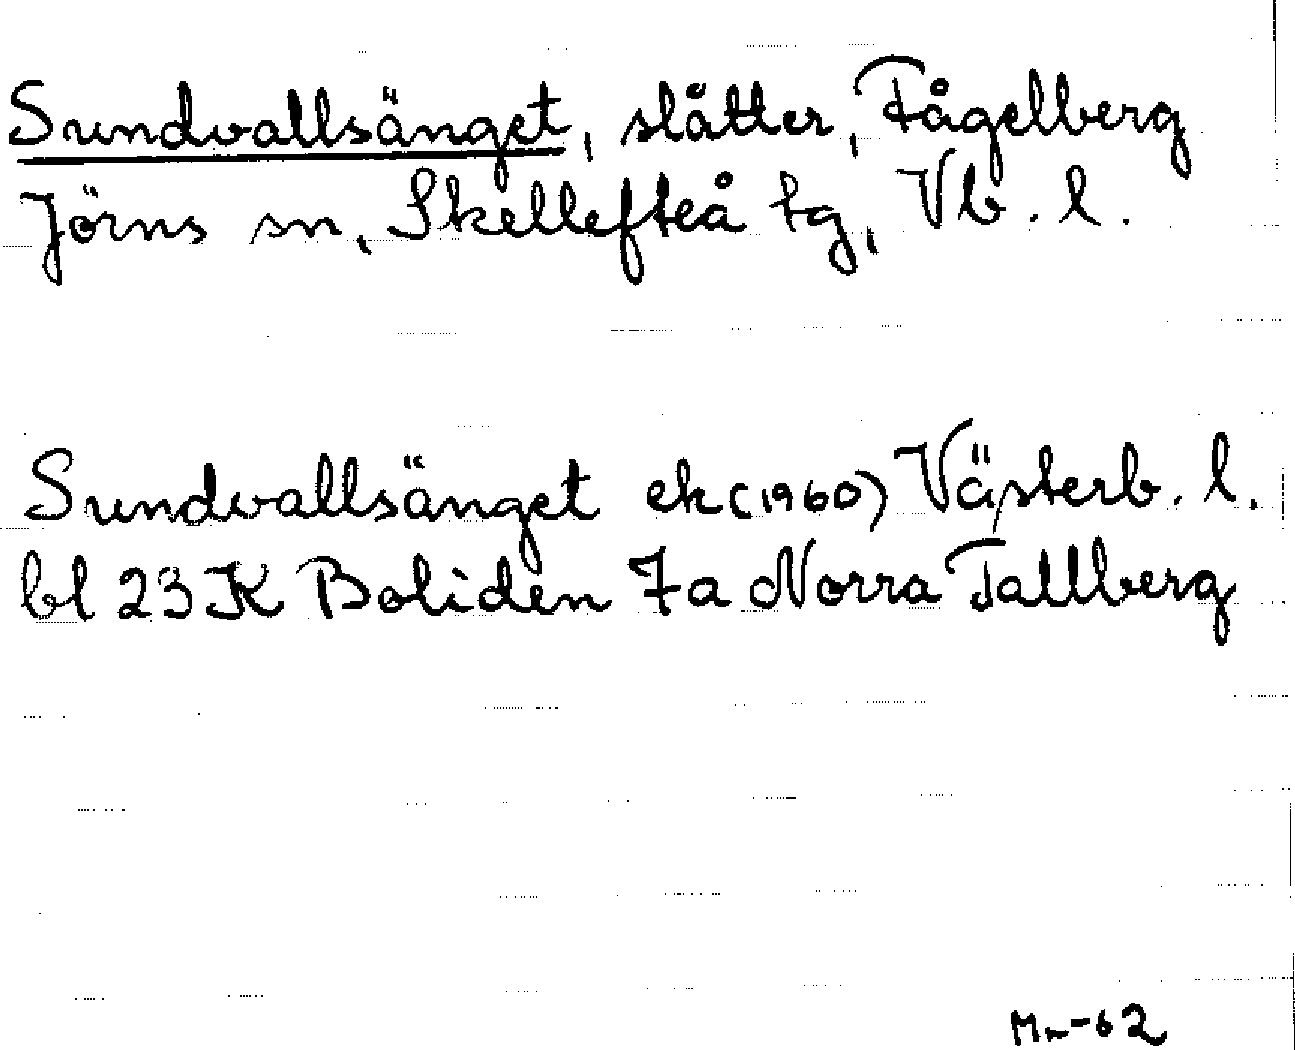 Sundvallsänget, slåtter, Fågelberg
Jörns sn, Skellefteå tg, Vb. l.
Sundvallsänget ek (1960) Västerb. l.
bl 23 K Boliden 7a Norra Tallberg
Mn-62